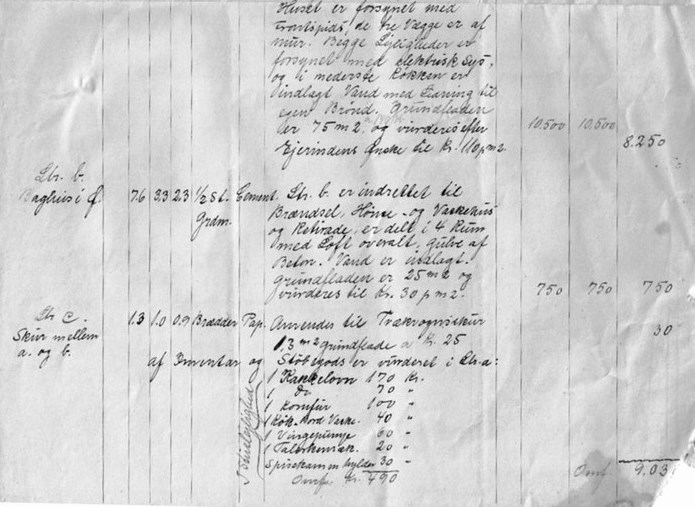 Huset er forsynet med
de tre Vægge er af
mur. Begge Lejligheder er
forsynet med elektrisk Lys,
og i nederste Køkken er
indlagt Vand med Ledning til
egen Brønd. Grundfladen
er 75 m2. og vurderes efter
Ejerindens Ønske til Kr. 110 p m2. 10,500 10,500 8.250
Ltr. b.
Baghus i 7.6 3.3 2.3 1/2 St. Cement. Ltr. b. er indrettet til
Grdm. Brændsel, Hønse- og Vaskehus
og Retirade, er delt i 4 Rum
med Loft overalt, Gulve af
Beton. Vand er indlagt.
Grundfladen er 25 m2 og
vurderes til Kr. 30 p m2. 750 750 750
Ltr c. 1.3 1.0 0.9 Brædder Pap. Anvendes til Trækvognsskur 30
Skur mellem 1,3 m2 grundflade a Kr. 25
a. og b. af Inventar og Støbegods er vurderet i Ltr. a:
1 Kakkelovn 170 Kr.
1 Do 70 "
1 Komfur 100 "
1 Køk. Bord Vaske. 40 "
1 Vingepumpe 60 "
1 Tallerkenræk. 20 "
Spisekammerhylder 30 "
Omf. Kr. 490
Omf. 9.03